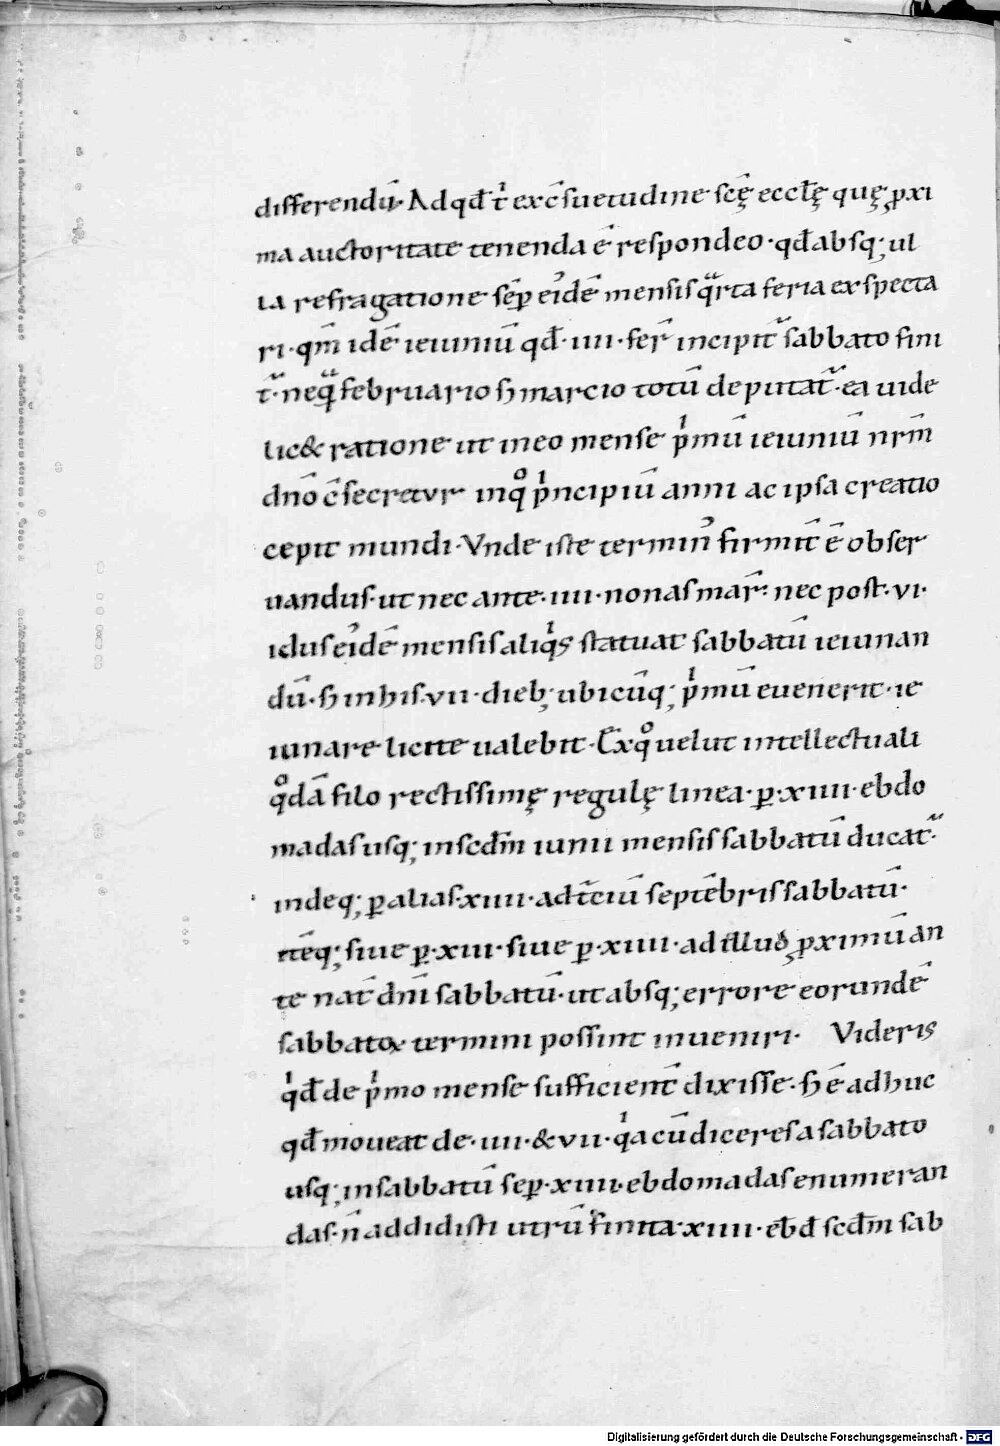 differendū. Ad qđ t̄ ex c̄suetudine scę̄ ecclę̄ quę ꝓxi
ma auctoritate tenenda ē respondeo · qđ absq; ul
la refragatione sēp eiđē mensis qͣrta feria exspecta
ri · qm̄ idē ieiuniū qđ · iiii · fer̄ incipit᷑ sabbato fini
t᷑ · neqͣ februario sꝫ marcio totū deputat᷑ · ea uide
lic& ratione ut in eo mense pͥmū ieiuniū nr̄m
dn̄o c̄secretvr in qͦ pͥncipiū anni ac ipsa creatio
cepit mundi · Vnde iste termin᷒ firmit̄ ē obser
uandus · ut nec ante · iiii · nonas mar̄ : nec post · vi ·
idus eiđē mensis aliqͥs statuat sabbatū ieiunan
dū · sꝫ in his · vii · dieb; ubicūq; pͥmū euenerit · ie
iunare licite ualebit · Ex qͦ uelut intellectuali
qͦdā filo rectissimę regulę linea · ꝑ · xiiii · ebdo
madas usq; in scđm iunii mensis sabbatū ducat᷑ ·
indeq; ꝑ alias · xiiii · ad t̄ciū septēbris sabbatū ·
itēq; siue ꝑ · xiii · siue ꝑ · xiiii · ad illud ꝓximū an
te nat̄ dn̄i sabbatū · ut absq; errore eorundē
sabbatoꝝ termini possint inueniri · Videris
qͥđ de pͥmo mense sufficient̄ dixisse · sꝫ ē adhuc
qđ moueat de · iiii · & vii · qͥa cū diceres a sabbato
usq; in sabbatū sēp · xiiii · ebdomadas enumeran
das · n̄ addidisti utrū finita · xiiii · ebđ scđm sab
Digitalisierung gefördert durch die Deutsche Forschungsgemeinschaft - DFG